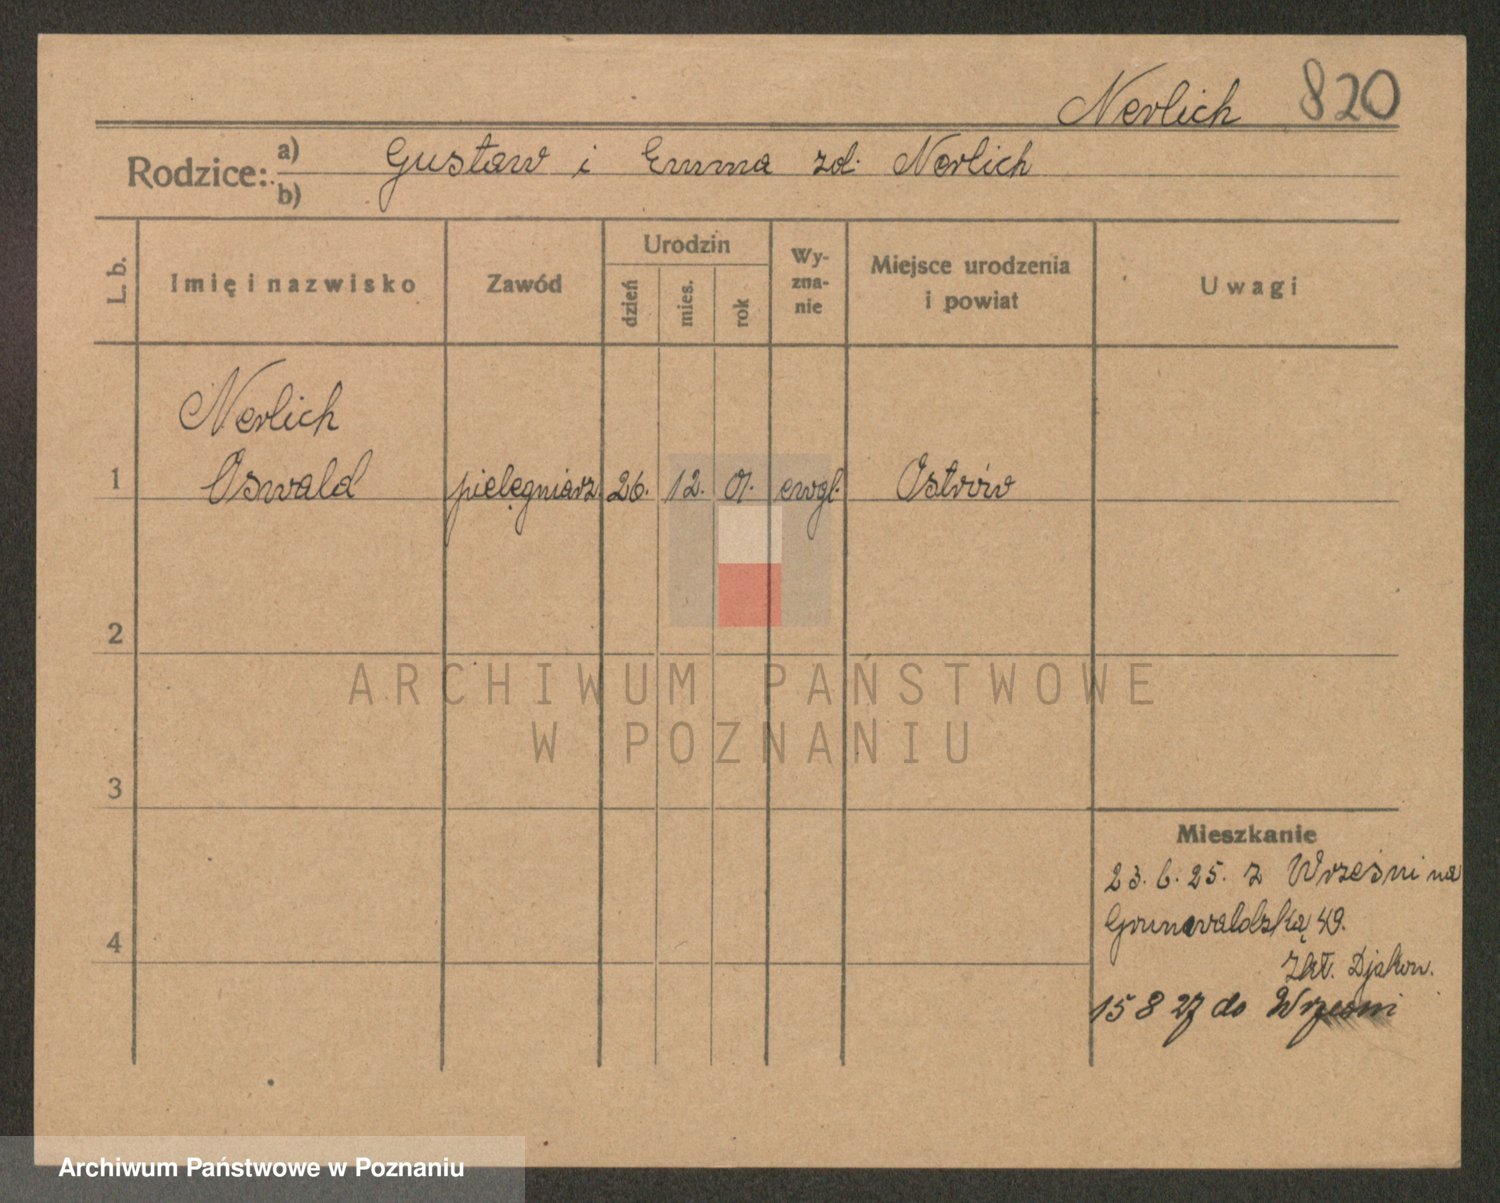 Nerlich 820
Rodzice: a) Gustaw i Emma zd. Nerlich
b)
L. b.
Imię i nazwisko
Zawód
Urodzin
dzień
mies.
rok
Wy-
zna-
nie
Miejsce urodzenia
i powiat
Uwagi
Nerlich
1 Oswald pielęgniarz 26. 12. 01. ewgl. Ostrów
2
3
4
ARCHIWUM PAŃSTWOWE
W POZNANIU
Mieszkanie
23. 6. 25. z Wrześni na
Grunwaldzką 49.
Zkł. Djakon.
15 8 27 do Wrzesni
Archiwum Państwowe w Poznaniu